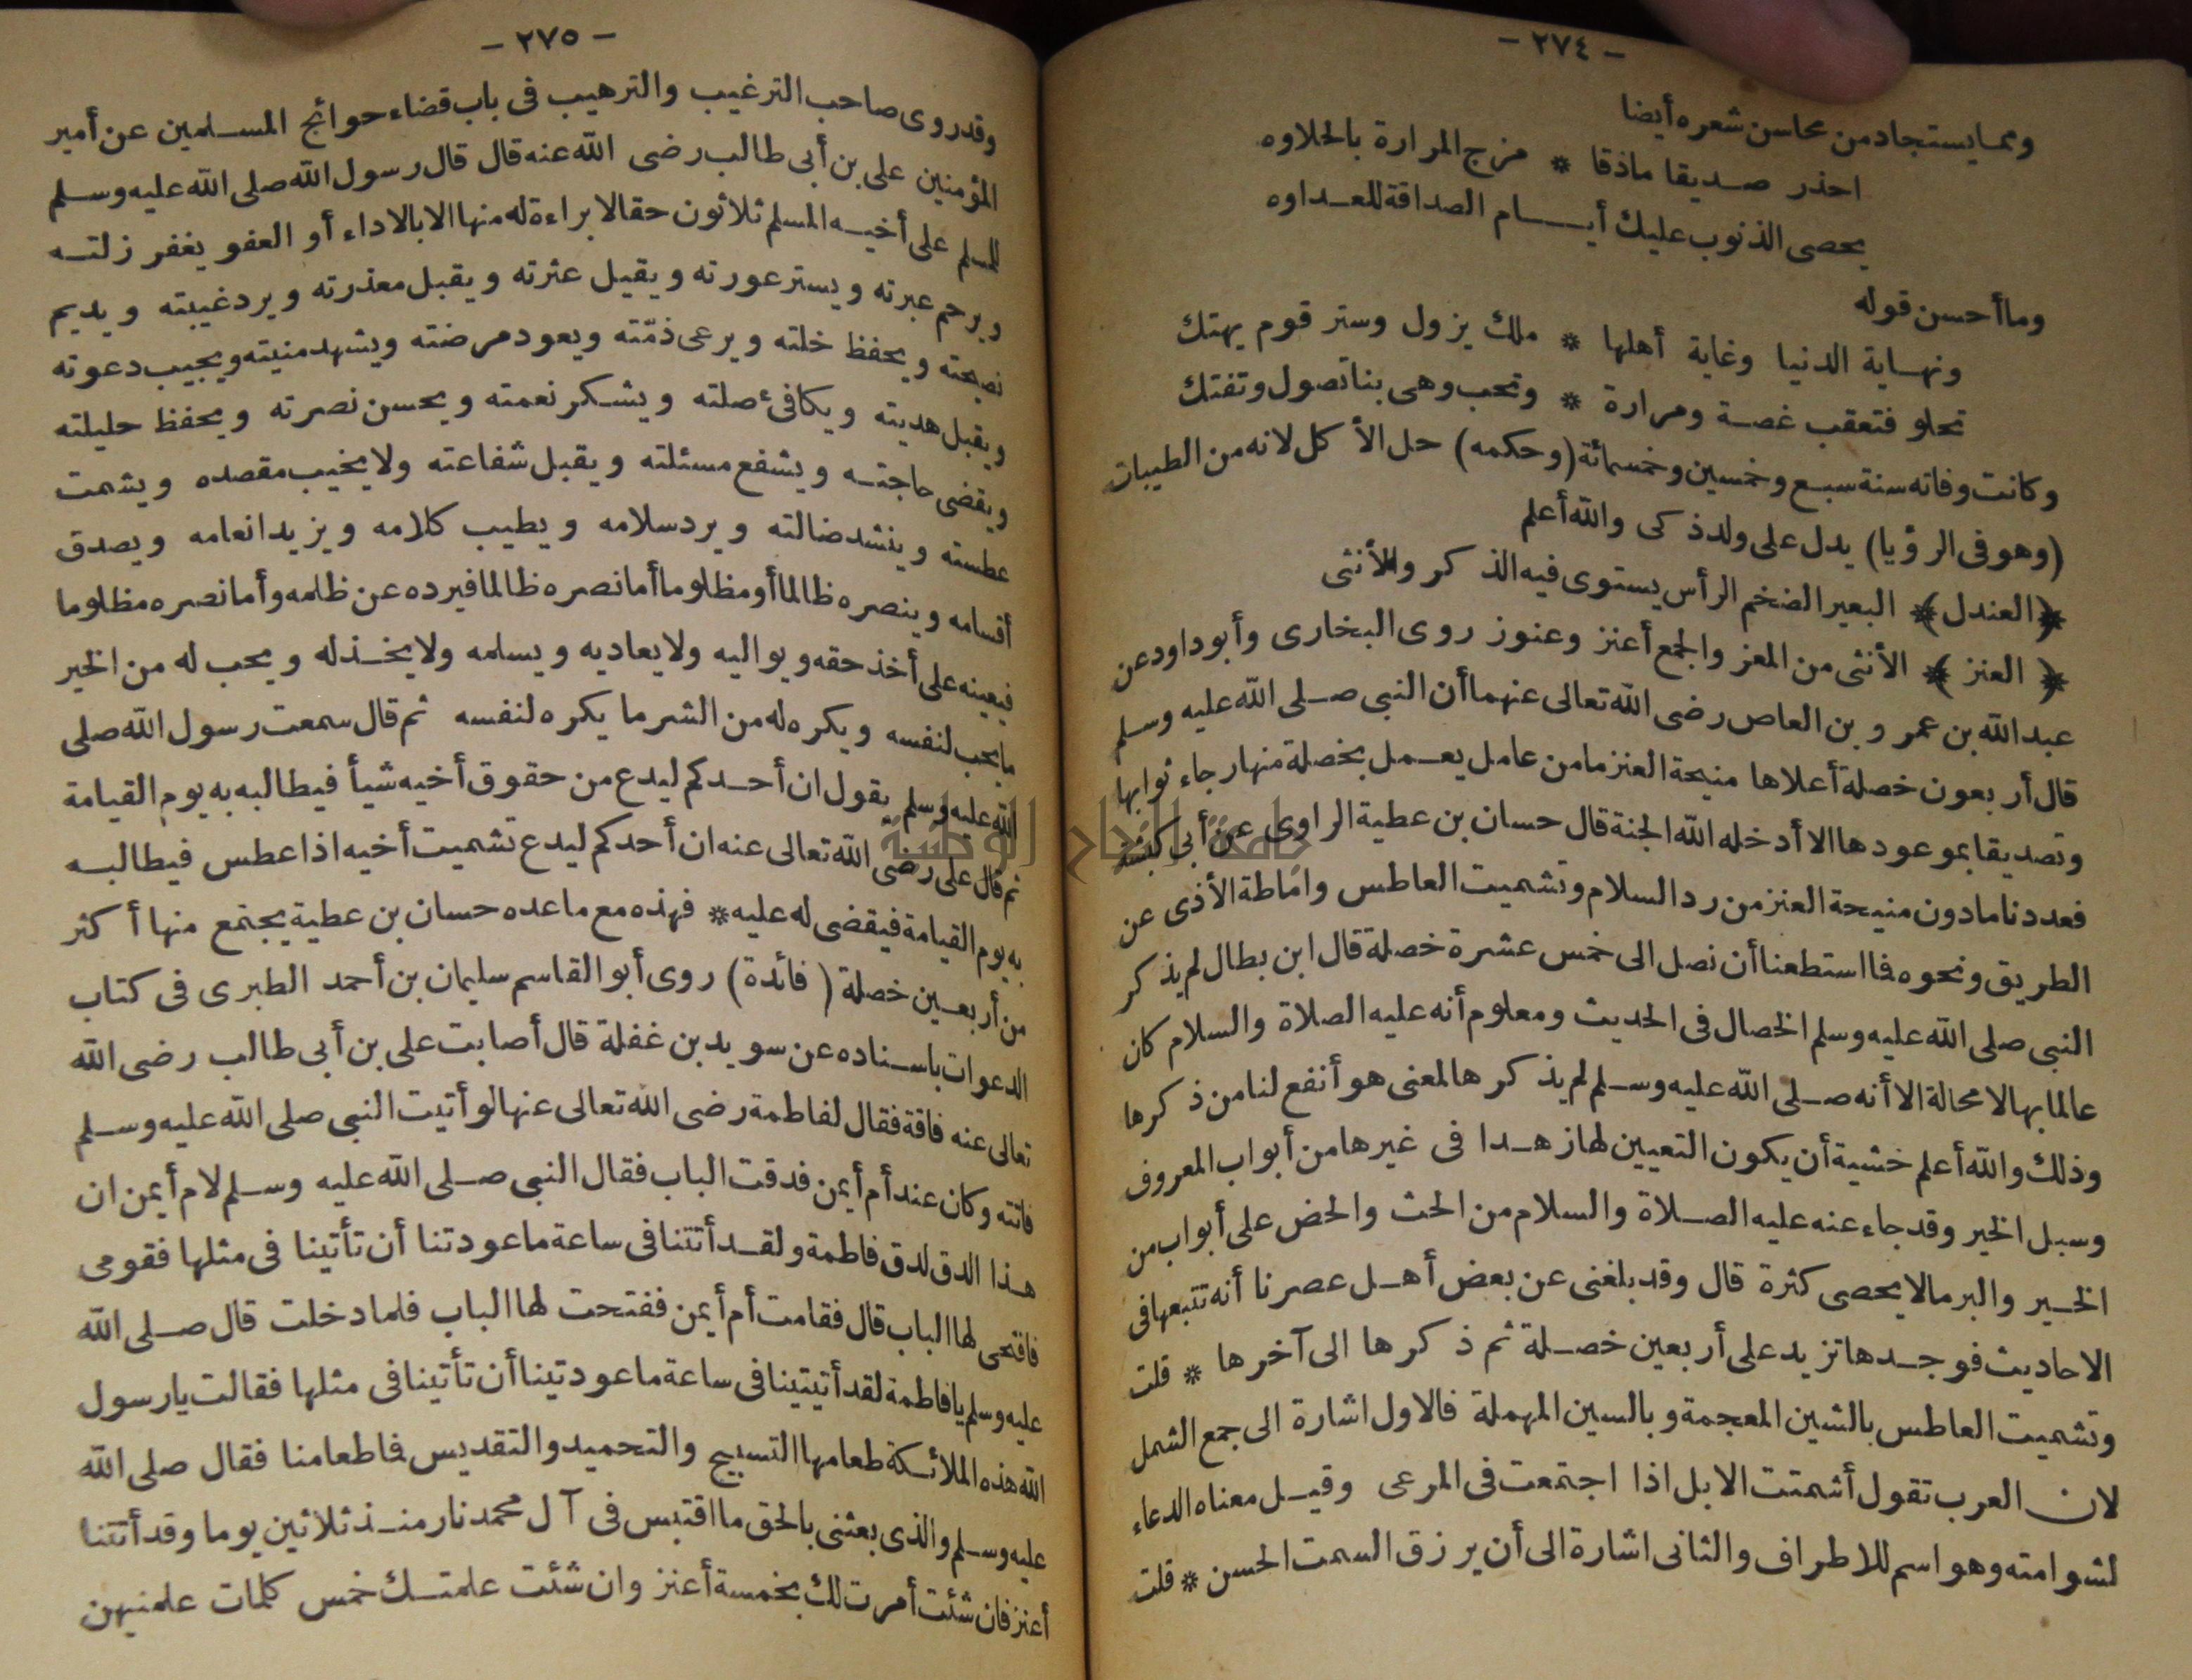 - ٢٧٤ -
ومما يستجاد من محاسن شعره أيضا
احذر صديقا ماذقا * مزج المرارة بالحلاوه
يحصى الذنوب عليك أيام الصداقة للعداوه
وما أحسن قوله
ونهاية الدنيا وغاية أهلها * ملك يزول وستر قوم يهتك
تحلو فتعقب غصة ومرارة * وتحب وهى بنا تصول وتفتك
وكانت وفاته سنة سبع وخمسين وخمسمائة (وحكمه) حل الأكل لانه من الطيبات
(وهو فى الرؤيا) يدل على ولد ذكى والله أعلم
﴿العندل﴾ البعير الضخم الرأس يستوى فيه الذكر والأنثى
﴿العنز﴾ الأنثى من المعز والجمع أعنز وعنوز روى البخارى وأبو داود عن
عبد الله بن عمرو بن العاص رضى الله تعالى عنهما أن النبى صلى الله عليه وسلم
قال أربعون خصلة أعلاها منيحة العنز ما من عامل يعمل بخصلة منها رجاء ثوابها
وتصديقا بموعودها الا أدخله الله الجنة قال حسان بن عطية الراوى عن أبى كبشة
فعددنا مادون منيحة العنز من رد السلام وتشميت العاطس واماطة الأذى عن
الطريق ونحوه فما استطعنا أن نصل الى خمس عشرة خصلة قال ابن بطال لم يذكر
النبى صلى الله عليه وسلم الخصال فى الحديث ومعلوم أنه عليه الصلاة والسلام كان
عالما بها لا محالة الا أنه صلى الله عليه وسلم لم يذكرها لمعنى هو أنفع لنا من ذكرها
وذلك والله أعلم خشية أن يكون التعيين لها زهدا فى غيرها من أبواب المعروف
وسبل الخير وقد جاء عنه عليه الصلاة والسلام من الحث والحض على أبواب من
الخير والبر ما لا يحصى كثرة قال وقد بلغنى عن بعض أهل عصرنا أنه تتبعها فى
الاحاديث فوجدها تزيد على أربعين خصلة ثم ذكرها الى آخرها * قلت
وتشميت العاطس بالشين المعجمة وبالسين المهملة فالاول اشارة الى جمع الشمل
لان العرب تقول أشمتت الابل اذا اجتمعت فى المرعى وقيل معناه الدعاء
لشوامته وهو اسم للاطراف والثانى اشارة الى أن يرزق السمت الحسن * قلت
- ٢٧٥ -
وقد روى صاحب الترغيب والترهيب فى باب قضاء حوائج المسلمين عن أمير
المؤمنين على بن أبى طالب رضى الله عنه قال قال رسول الله صلى الله عليه وسلم
للمسلم على أخيه المسلم ثلاثون حقا لا براءة له منها الا بالاداء أو العفو يغفر زلته
ويرحم عبرته ويستر عورته ويقيل عثرته ويقبل معذرته ويرد غيبته ويديم
نصيحته ويحفظ خلته ويرعى ذمّته ويعود مرضته ويشهد منيته ويجيب دعوته
ويقبل هديته ويكافئ صلته ويشكر نعمته ويحسن نصرته ويحفظ حليلته
ويقضى حاجته ويشفع مسئلته ويقبل شفاعته ولا يخيب مقصده ويشمت
عطسته وينشد ضالته ويرد سلامه ويطيب كلامه ويزيد انعامه ويصدق
أقسامه وينصره ظالما أو مظلوما أما نصره ظالما فيرده عن ظلمه وأما نصره مظلوما
فيعينه على أخذ حقه ويواليه ولا يعاديه ويسلمه ولا يخذله ويحب له من الخير
ما يحب لنفسه ويكره له من الشر ما يكره لنفسه ثم قال سمعت رسول الله صلى
الله عليه وسلم يقول ان أحدكم ليدع من حقوق أخيه شيأ فيطالبه به يوم القيامة
ثم قال على رضى الله تعالى عنه ان أحدكم ليدع تشميت أخيه اذا عطس فيطالبه
به يوم القيامة فيقضى له عليه * فهذه مع ما عده حسان بن عطية يجتمع منها أكثر
من أربعين خصلة (فائدة) روى أبو القاسم سليمان بن أحمد الطبرى فى كتاب
الدعوات باسناده عن سويد بن غفلة قال أصابت على بن أبى طالب رضى الله
تعالى عنه فاقة فقال لفاطمة رضى الله تعالى عنها لو أتيت النبى صلى الله عليه وسلم
فاتته وكان عند أم أيمن فدقت الباب فقال النبى صلى الله عليه وسلم لام أيمن ان
هذا الدق لدق فاطمة ولقد أتتنا فى ساعة ما عودتنا أن تأتينا فى مثلها فقومى
فافتحى لها الباب قال فقامت أم أيمن ففتحت لها الباب فلما دخلت قال صلى الله
عليه وسلم يا فاطمة لقد أتيتينا فى ساعة ما عودتينا أن تأتينا فى مثلها فقالت يا رسول
الله هذه الملائكة طعامها التسبيح والتحميد والتقديس فما طعامنا فقال صلى الله
عليه وسلم والذى بعثنى بالحق ما اقتبس فى آل محمد نار منذ ثلاثين يوما وقد أتتنا
أعنز فان شئت أمرت لك بخمسة أعنز وان شئت علمتك خمس كلمات علمنيهن
جامعة النجاح الوطنية